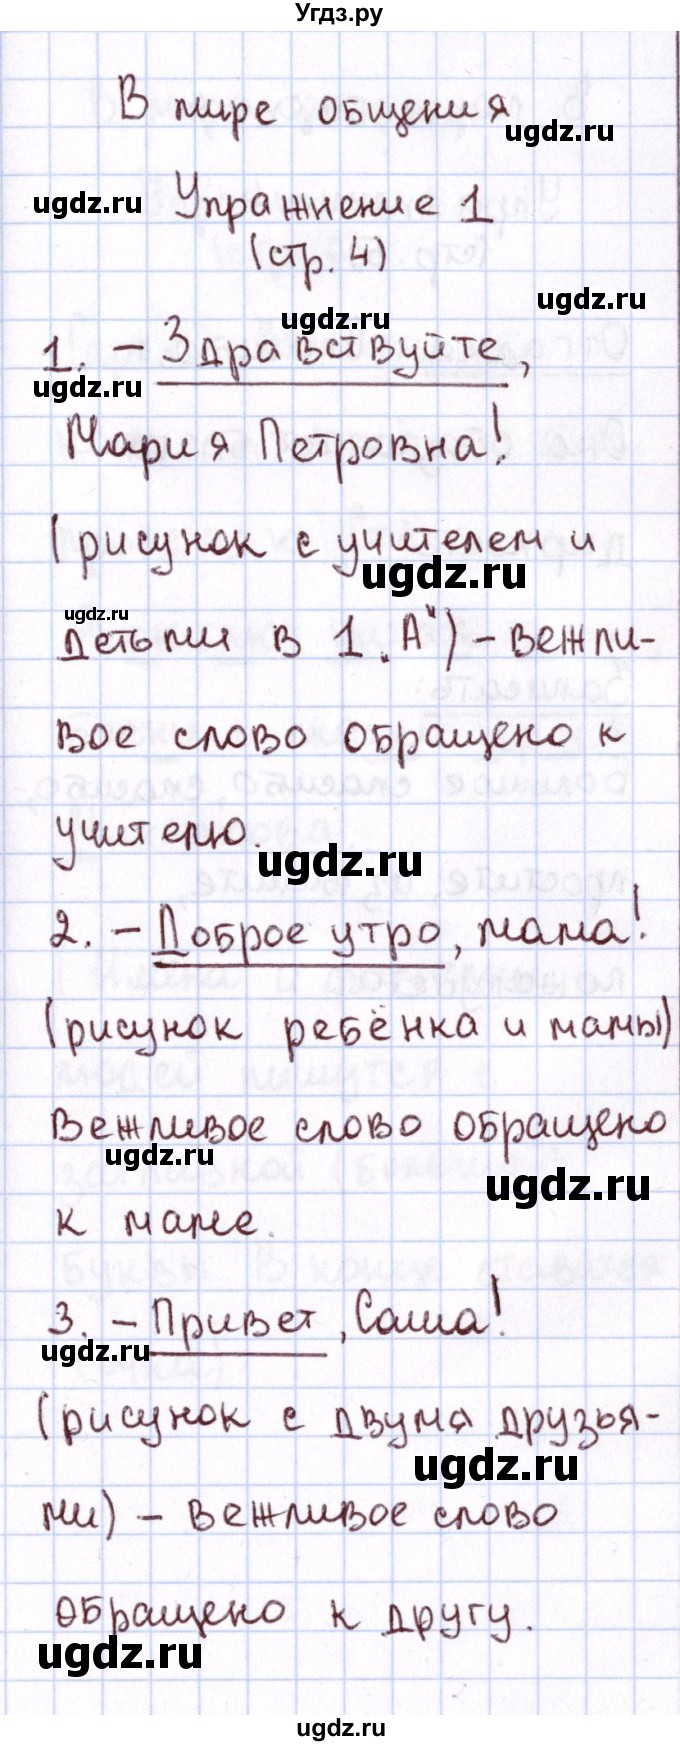 Угдз.ру
В мире общения
ugdz.ru
ugdz.ru Упражнение 1
(стр. 4)
ugdz.ru
ugdz.ru
1. – Здравствуйте,
ugdz.ru
Мария Петровна!
(рисунок с учителем и
ugdz.ru
ugdz.ru
детьми в 1 „А") – вежли-
вое слово обращено к
учителю.
ugdz.ru
2. – Доброе утро, мама!
(рисунок ребёнка и мамы)
вежливое слово обращено
ugdz.ru
ugdz.ru
к маме.
3. – Привет, Саша!
ugdz.ru
(рисунок с двумя друзья-
ugdz.ru
ми) – вежливое слово
обращено к другу.
ugdz.ru
ugdz.ru